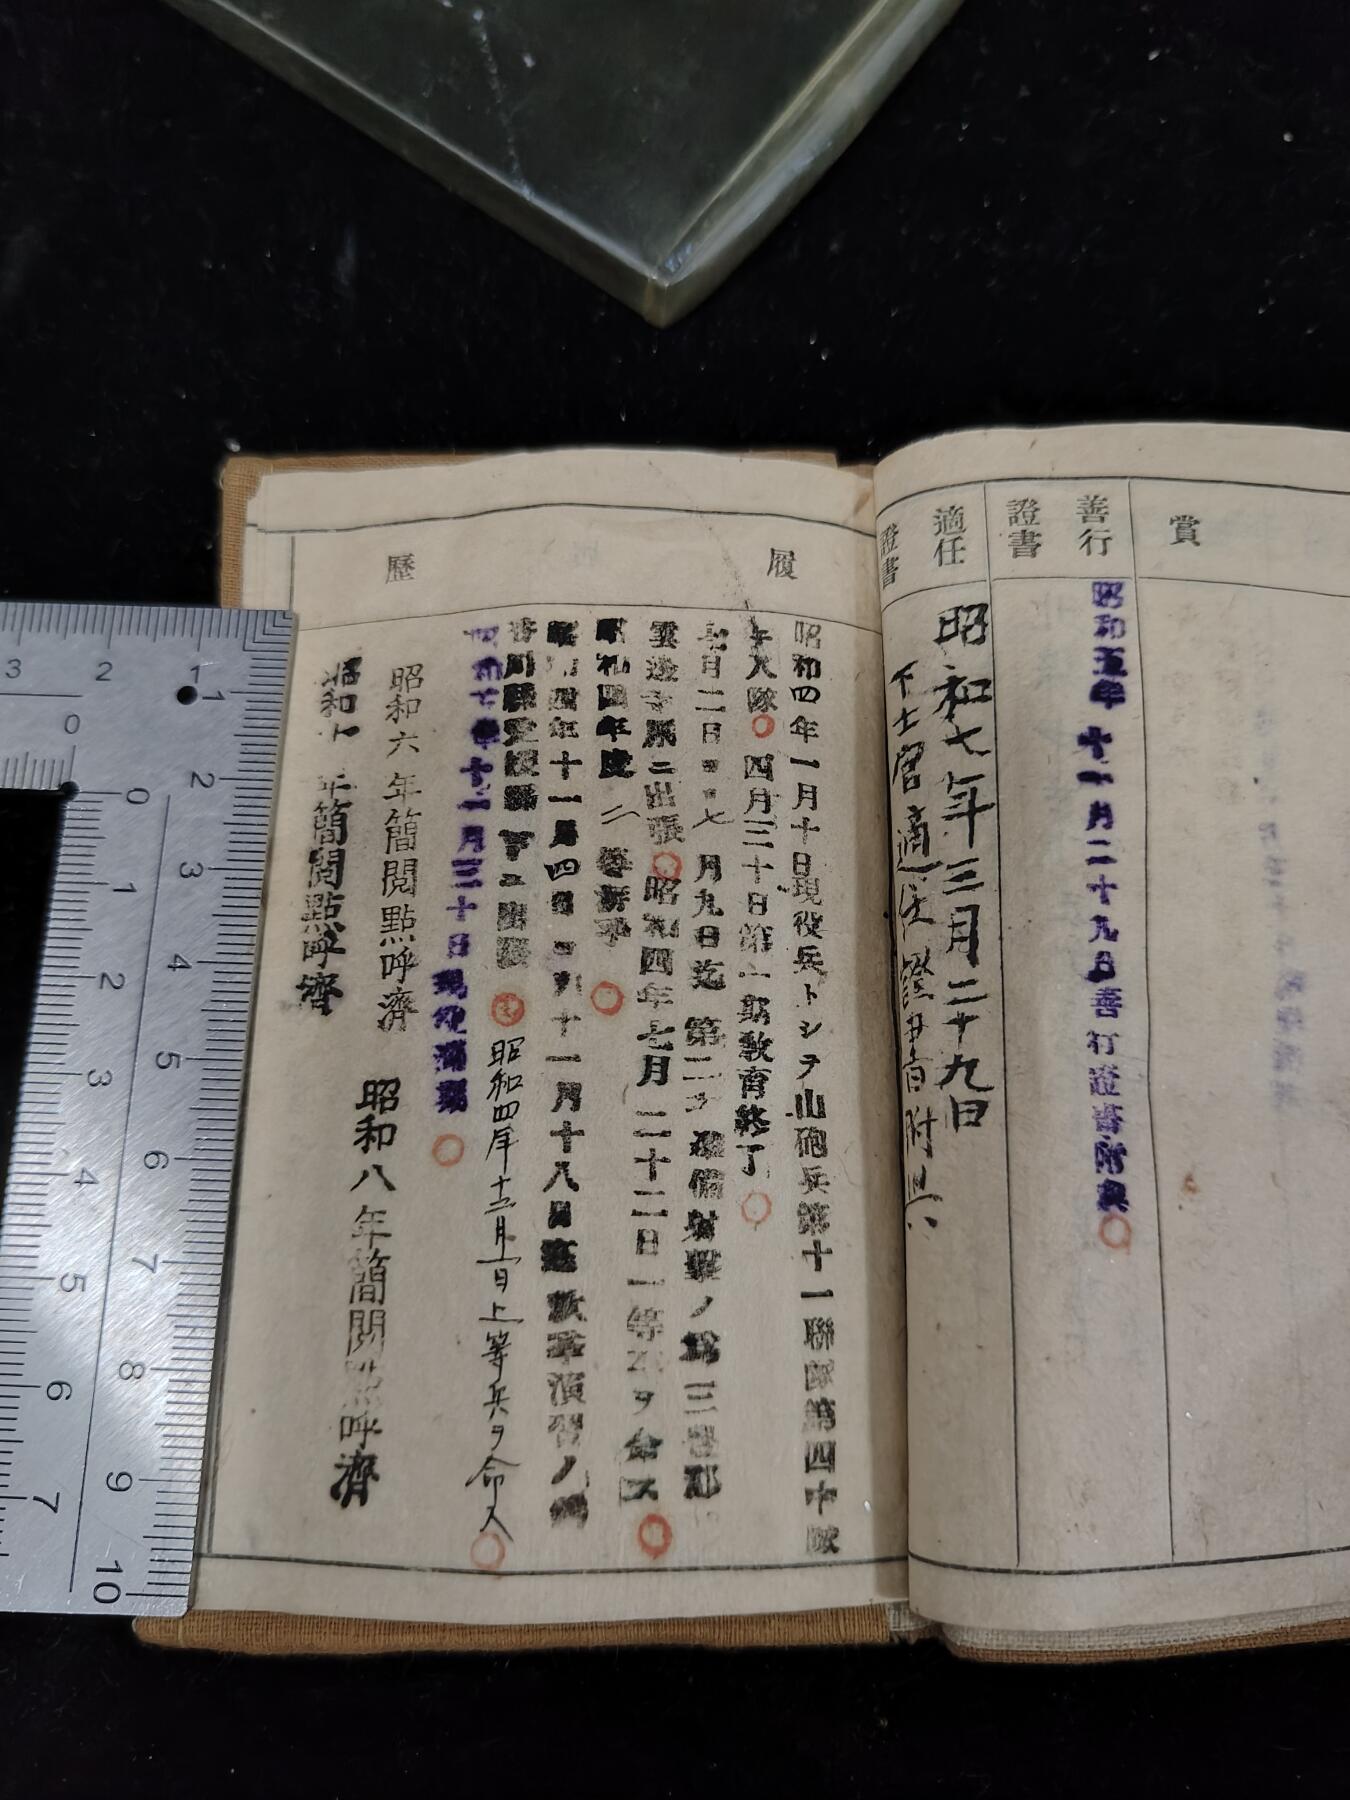 賞
善行
證書
昭和五年十一月二十九日善行證書附與
適任
證書
昭和七年三月二十九日
下士官適任證書附與
履歷
昭和四年一月十日現役兵トシヲ山砲兵第十一聯隊第四中隊
入隊 四月三十日第一期教育終了
七月二日ヨ 七月九日迄 第二 備射擊ノ爲三豊郡
出張 昭和四年七月二十二日一等 ヲ命ス
昭和四年度二等
昭和四年十一月四日ヨリ十一月十八日迄 秋季演習ノ爲
香川縣愛媛縣下ニ出張 昭和四年十二月一日上等兵ヲ命ス
十一月三十日現役滿期
昭和六年簡閲點呼濟 昭和八年簡閲點呼濟
昭和十年簡閲點呼濟
3 2 1
0 1 2 3 4 5 6 7
0 1 2 3 4 5 6 7 8 9 10